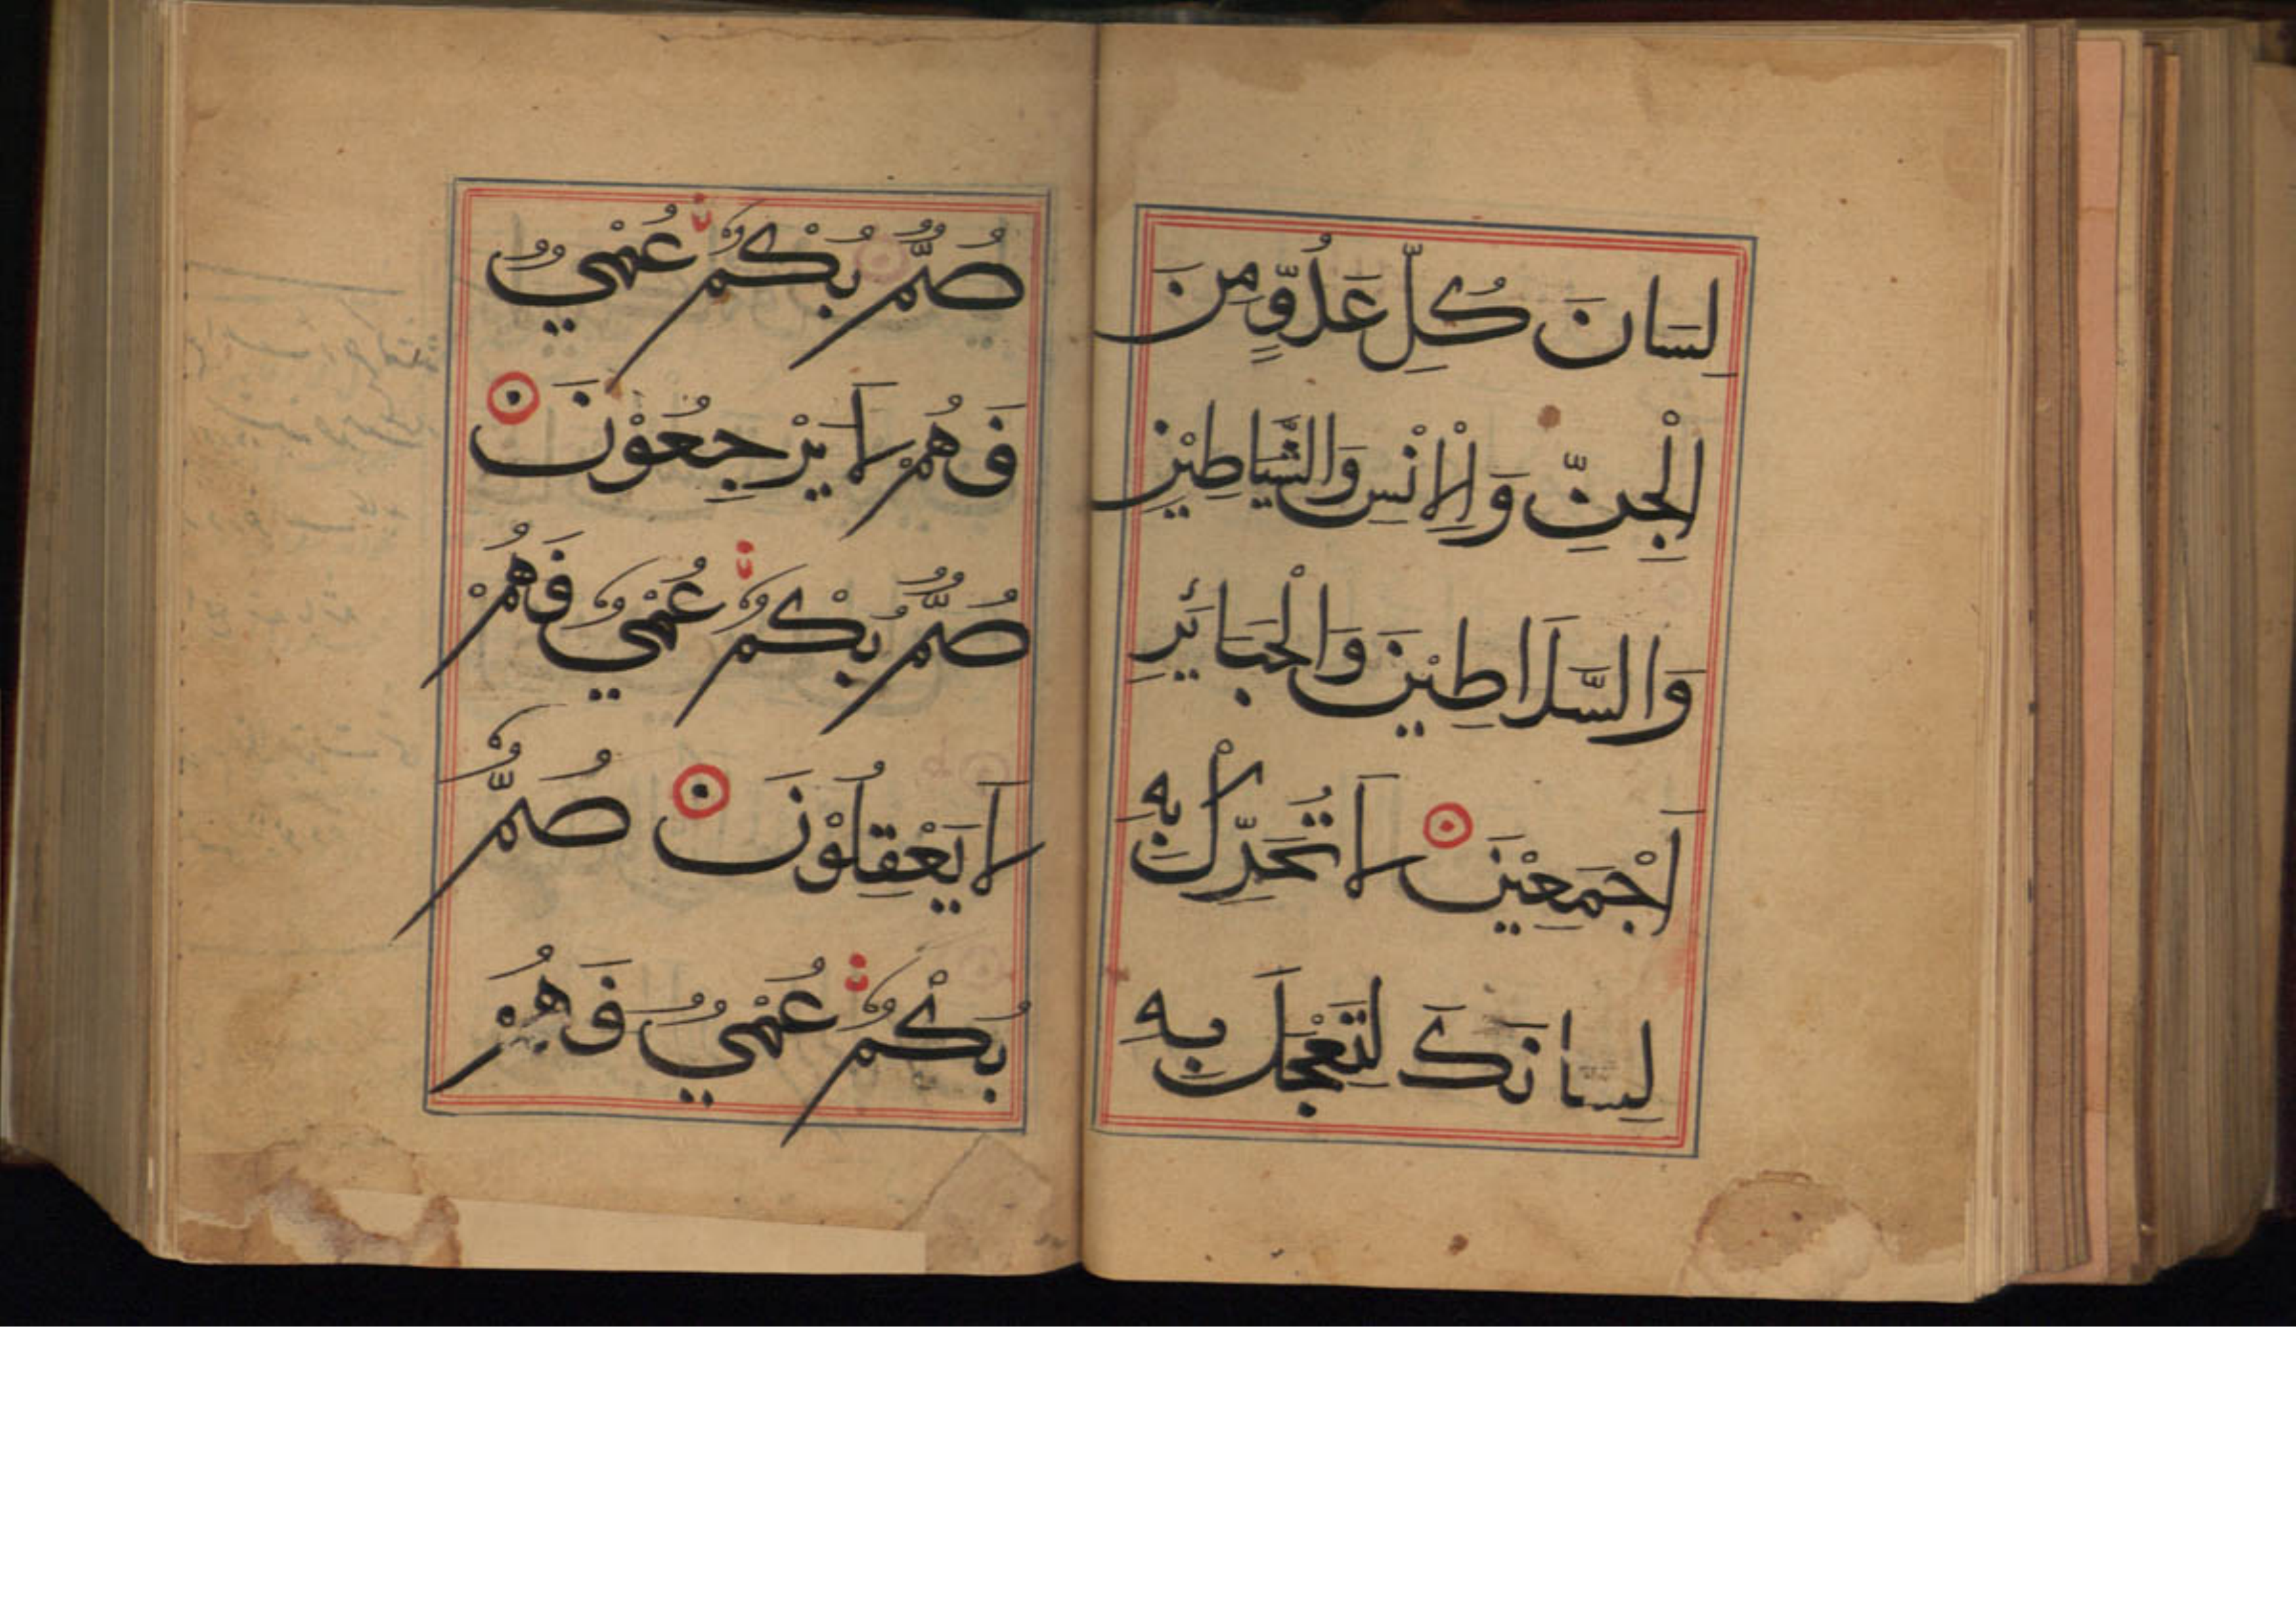 لِسَانَ كُلِّ عَدُوٍّ مِنَ
الْجِنِّ وَالْاِنْسِ وَالشَّيَاطِيْنِ
وَالسَّلَاطِيْنِ وَالْجَبَائِيرِ
اَجْمَعِيْنَ لَا تُحَرِّكْ بِهِ
لِسَانَكَ لِتَعْجَلَ بِهِ
صُمٌّ بُكْمٌ عُمْيٌ
فَهُمْ لَا يَرْجِعُوْنَ
صُمٌّ بُكْمٌ عُمْيٌ فَهُمْ
لَا يَعْقِلُوْنَ صُمٌّ
بُكْمٌ عُمْيٌ فَهُمْ